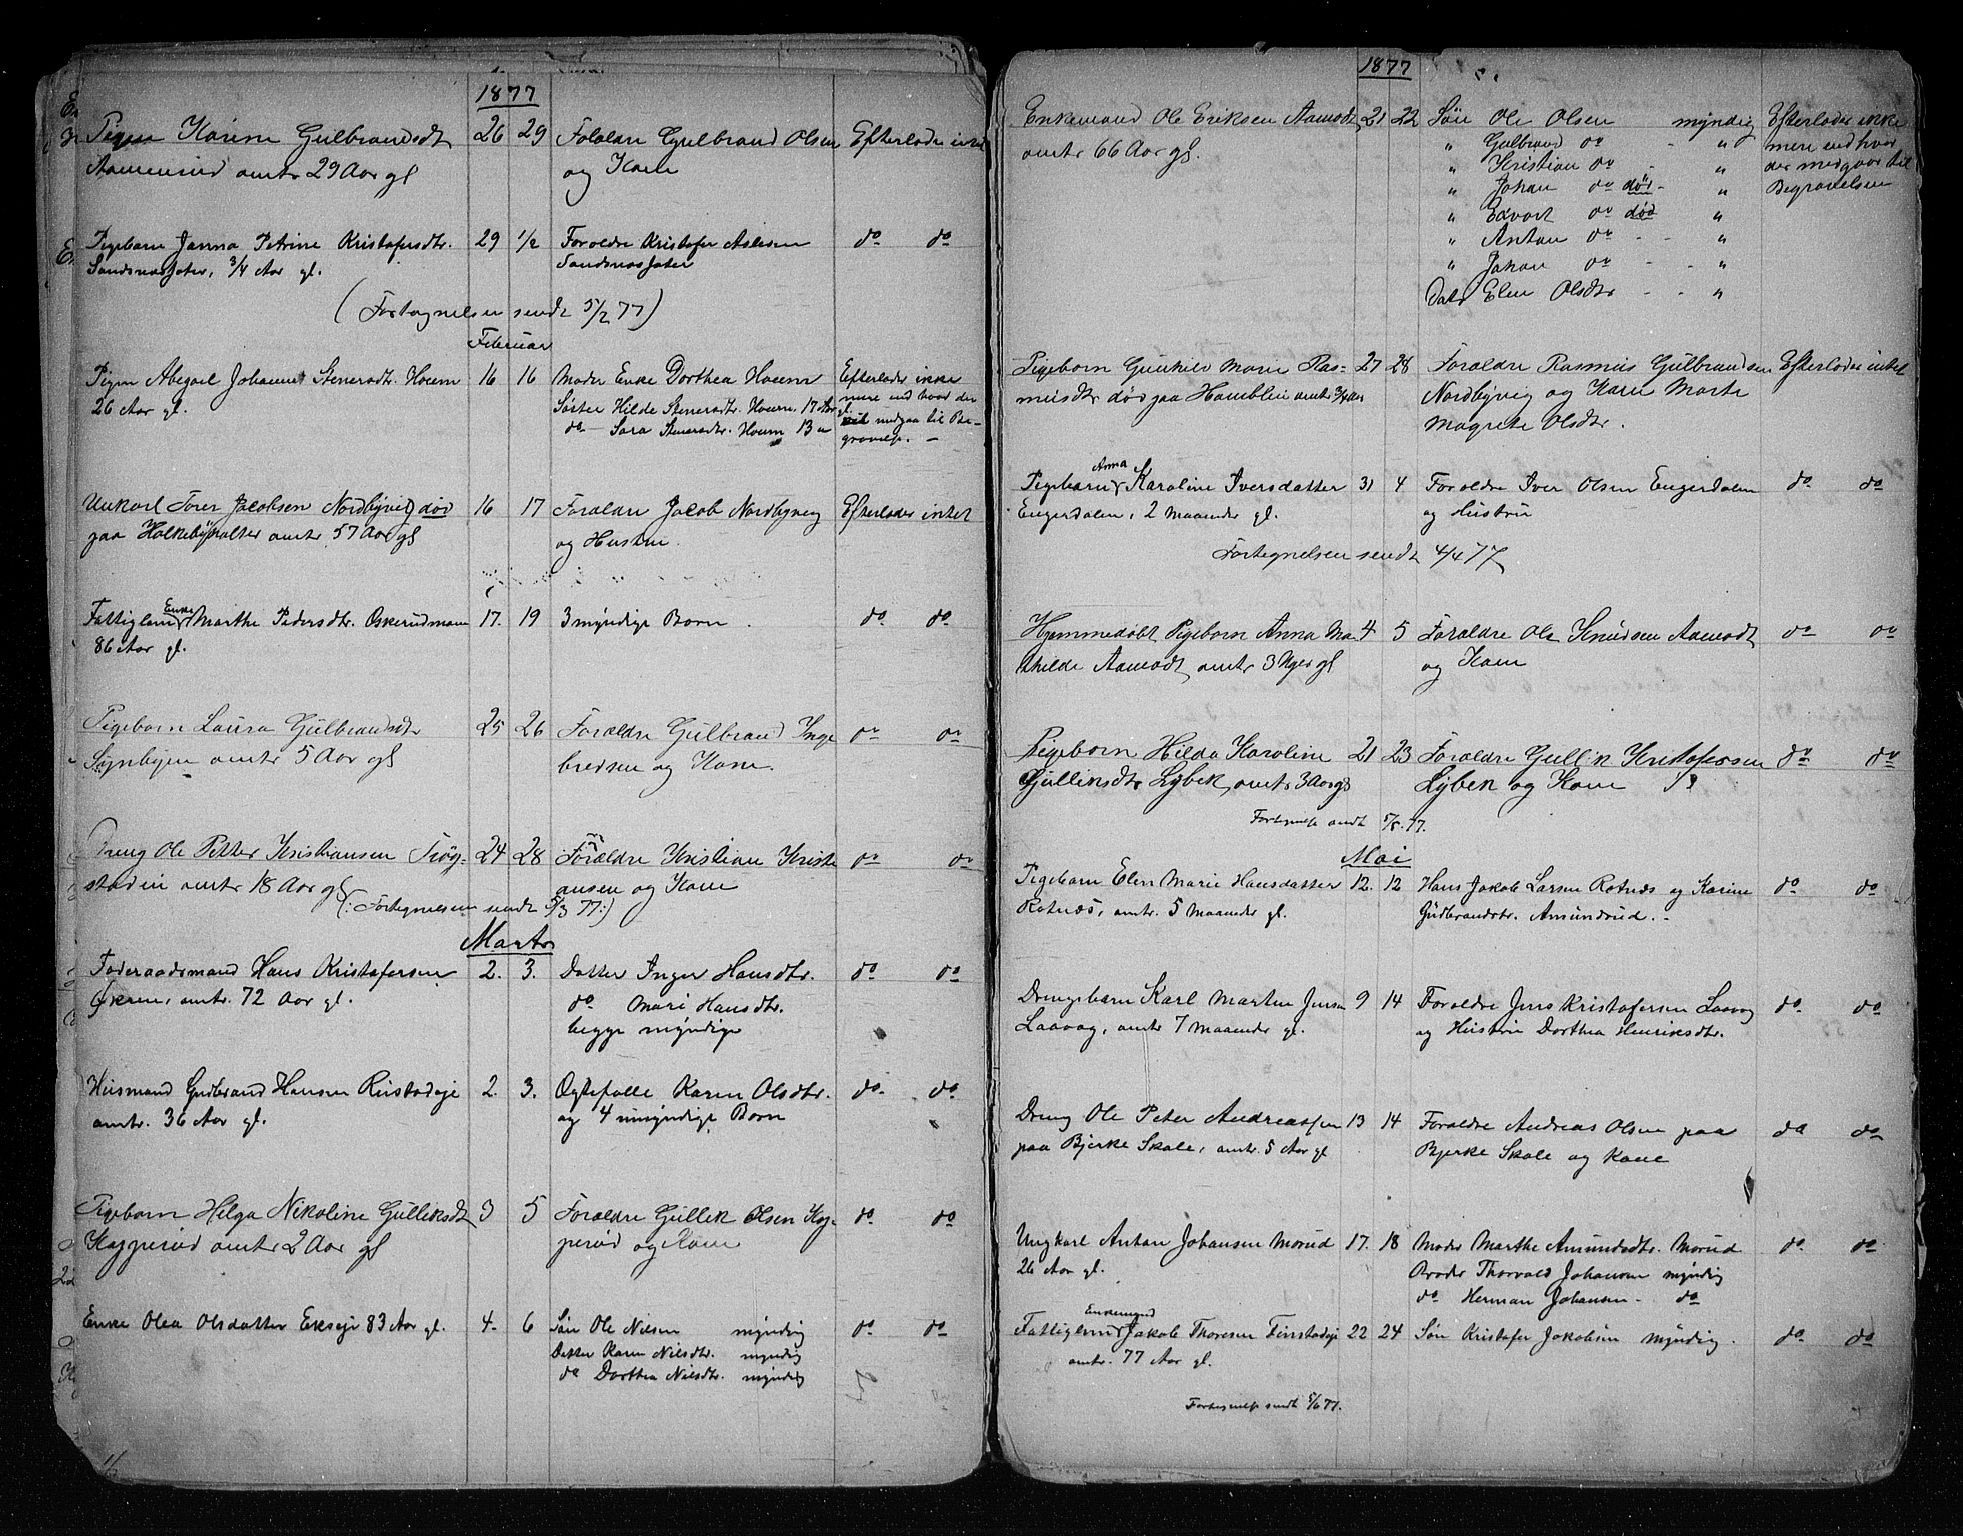 1877
Pigen Karine Gulbrandsdt 26 29 Foraldre Gulbrand Olsen Efterlader intet
Aamensrud omtr 29 Aar gl og Kone
Pigebarn Janna Petrine Kristofersdtr. 29 1/2 Foraldre Kristofer Aslesen do do
Sandsnæsseter, 3/4 Aar gl. Sandsnæsseter
(Fortegnelsen sendt 5/2 77)
Februar
Pigen Abigael Johanne Stenersdtr. Hoem 16 16 Moder Enke Dorthea Hoem Efterlader ikke
26 Aar gl. Søster Hilde Stenersdtr. Hoem 17 Aar gl. mere end hvad der
do — Sara Stenersdtr. Hoem 13 " vil medgaa til Be-
gravelse. —
Unkarl Torer Jacobsen Nordbyvig død 16 17 Foraldre Jacob Nordbyvig Efterlader intet
paa omtr 57 Aar gl og Hustru
Fattiglem Enke Marthe Pedersdtr. Oskerudmoen 17. 19 3 myndige Børn. do do
86 Aar gl.
Pigebarn Laura Gulbrandsdtr 25 26 Foraldre Gulbrand Inge do do
omtr 5 Aar gl bredsen og Kone.
Dreng Ole Petter Kristiansen Trøg- 24 28 Forældre Kristian Kristi do do
stadeie omtr 18 Aar gl ansen og Kone
(: Fortegnelsen sendt 5/3 77:)
Marts
Føderaadsmand Hans Kristofersen 2. 3. Datter Inger Hansdtr. do do
omtr. 72 Aar gl. do Mari Hansdtr.
begge myndige
Husmand Gudbrand Hansen Rustadeje 2. 3. Ægtefælle Karen Olsdtr. do do
omtr. 36 Aar gl. og 4 umyndige Børn
Pigebarn Helga Nikoline Gulleksdt 3 5 Foraldre Gullek Olsen Kop- do do
Kopperud omtr 2 Aar gl perud og Kone
Enke Olea Olsdatter Ekseje 83 Aar gl. 4. 6 Søn Ole Nilsen myndig do do
Datter Karen Nilsdtr. myndig
do Dorthea Nilsdtr. myndig
1877
Enkemand Ole Eriksen Aamodt 21 22 Søn Ole Olsen myndig Efterlader ikke
omtr 66 Aar gl. " Gulbrand do - " mere end hvad
" Kristian do - " der medgaar til
" Johan do død - " Begravelsen
" Edvart do død "
" Anton do - - "
" Johan do - - "
Datr Elen Olsdtr - - "
Pigebarn Gunhild Marie Ras- 27 28 Foraldre Rasmus Gulbrandsen Efterlader intet
musdtr død paa omtr 3/4 Aar Nordbyvig og Kone Marte
Magrete Olsdtr.
Pigebarn Anna Karoline Iversdatter 31 4 Foraldre Iver Olsen Engerdalen do do
Engerdalen, 2 maaneder gl. og Hustru
Fortegnelsen sendt 4/4 77
Hjemmedøbt Pigebarn Anna Ma 4 5 Foraldre Ole Knudsen Aamodt do do
thilde Aamodt omtr 3 Uger gl og Kone
Pigebarn Hilda Karoline 21 23 Foraldre Gullik Kristofersen do do
Gulliksdtr Lybek, omtr 3 Aar gl Lybek og Kone
Fortegnelse sendt 5/5. 77.
Mai
Pigebarn Elen Marie Hansdatter 12. 12 Hans Jakob Larsen Rotnæs og Karine do do
Rotnæs, omtr. 5 maaneder gl. Gudbrandsdtr. Amundrud. -
Drengebarn Karl Martin Jensen 9 14 Foraldre Jens Kristofersen Laavag do do
Laavag, omtr 7 maaneder gl. og Hustru Dorthea Henriksdtr.
Dreng Ole Peter Andreassen 13 14 Foraldre Andreas Olsen paa do do
paa Bjerke Skole, omtr. 5 Aar gl Bjerke Skole og Kone
Ungkarl Anton Johansen Morud 17. 18 Moder Marthe Amundsdtr. Morud do do
26 Aar gl. Broder Thorvald Johansen myndig
do Herman Johansen - do
Fattiglem Enkemand Jakob Thoresen Finstadeje 22 24 Søn Kristofer Jakobsen myndig. do do
omtr. 77 Aar gl.
Fortegnelse sendt 5/6 77.